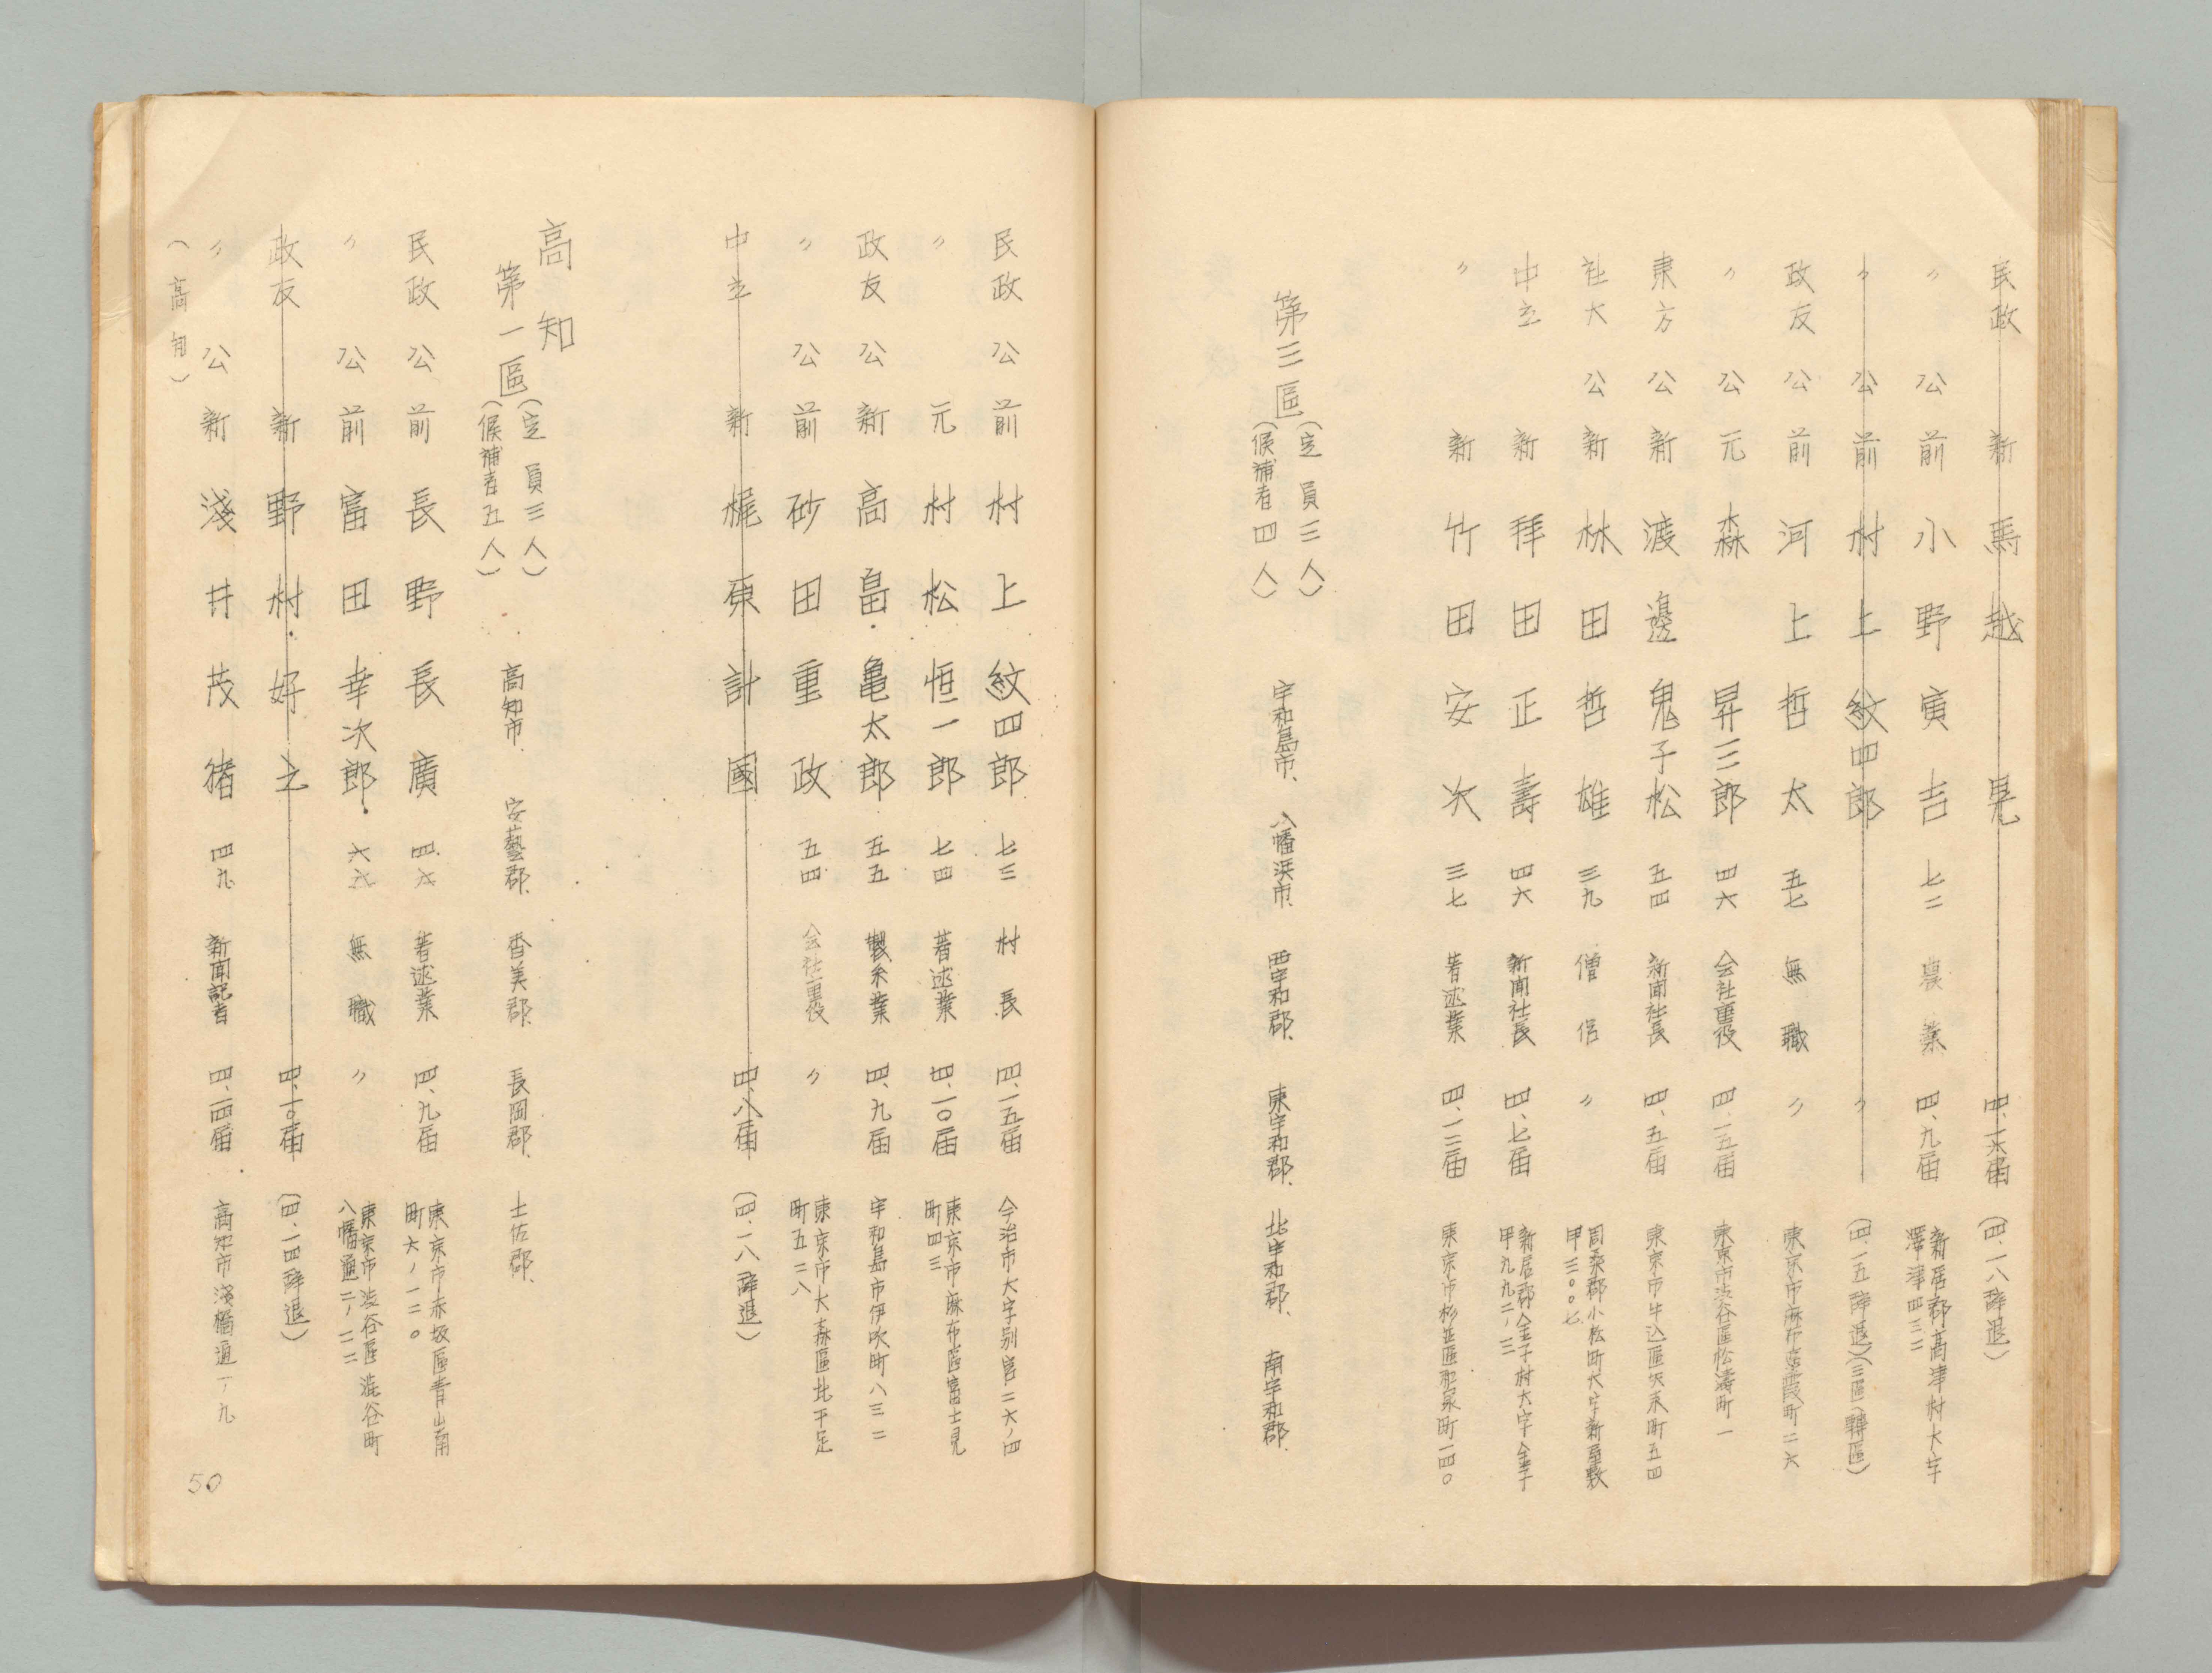 民政 新 馬越晃 四、一六届 (四、一八辞退)
〃 公 前 小野寅吉 七二 農業 四、九届 新居郡高津村大字澤津四三二
〃 公 前 村上紋四郎 〃 (四、一五辞退)(三區ヘ轉區)
政友 公 前 河上哲太 五七 無職 〃 東京市麻布區霞町二六
〃 公 元 森昇三郎 四六 会社重役 四、一五届 東京市渋谷區松濤町一
東方 公 新 渡邊鬼子松 五四 新聞社長 四、五届 東京市牛込區矢来町五四
社大 公 新 林田哲雄 三九 僧侶 〃 周桑郡小松町大字新屋敷甲三〇〇七
中立 新 拜田正壽 四六 新聞社長 四、七届 新居郡金子村大字金子甲九九二ノ三
〃 新 竹田安次 三七 著述業 四、一二届 東京市杉並區和泉町一四〇
第三區(定員三人)(候補者四人) 宇和島市、八幡浜市、西宇和郡、東宇和郡、北宇和郡、南宇和郡、
民政 公 前 村上紋四郎 七三 村長 四、一五届 今治市大字別宮二六ノ四
〃 元 村松恒一郎 七四 著述業 四、一〇届 東京市麻布區富士見町四三
政友 公 新 高畠亀太郎 五五 製糸業 四、九届 宇和島市伊吹町八三二
〃 公 前 砂田重政 五四 会社重役 〃 東京市大森區北千足町五二八
中立 新 梶原計國 四、八届 (四、一八辞退)
高知
第一區(定員三人)(候補者五人) 高知市、安藝郡、香美郡、長岡郡、土佐郡、
民政 公 前 長野長廣 四六 著述業 四、九届 東京市赤坂區青山南町六ノ一二〇
〃 公 前 富田幸次郎 六六 無職 〃 東京市渋谷區渋谷町八幡通二ノ二二
政友 新 野村好之 四、一〇届 (四、一四辞退)
〃 公 新 淺井茂猪 四九 新聞記者 四、一四届 高知市濱橋通一ノ九
(高知)
50